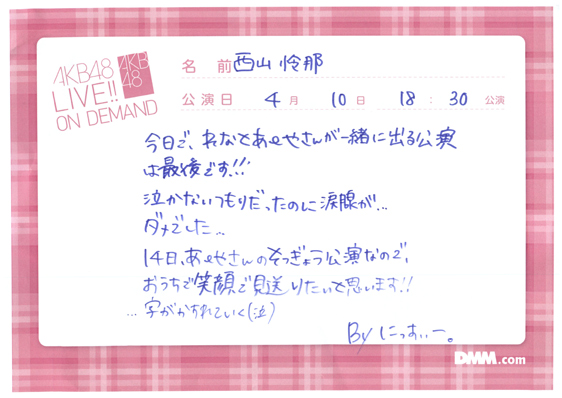 AKB48
LIVE!!
ON DEMAND
AKB
48
名 前 西山 怜那
公演日 4月 10日 18:30 公演
今日で、れなとあーやさんが一緒に出る公演
は最後です!!!
泣かないつもりだったのに涙腺が...
ダメでした...
14日、あーやさんのそつぎょう公演なので、
おうちで笑顔で見送りたいと思います!!
...字がかすれていく(泣)
By にっしぃー。
DMM.com